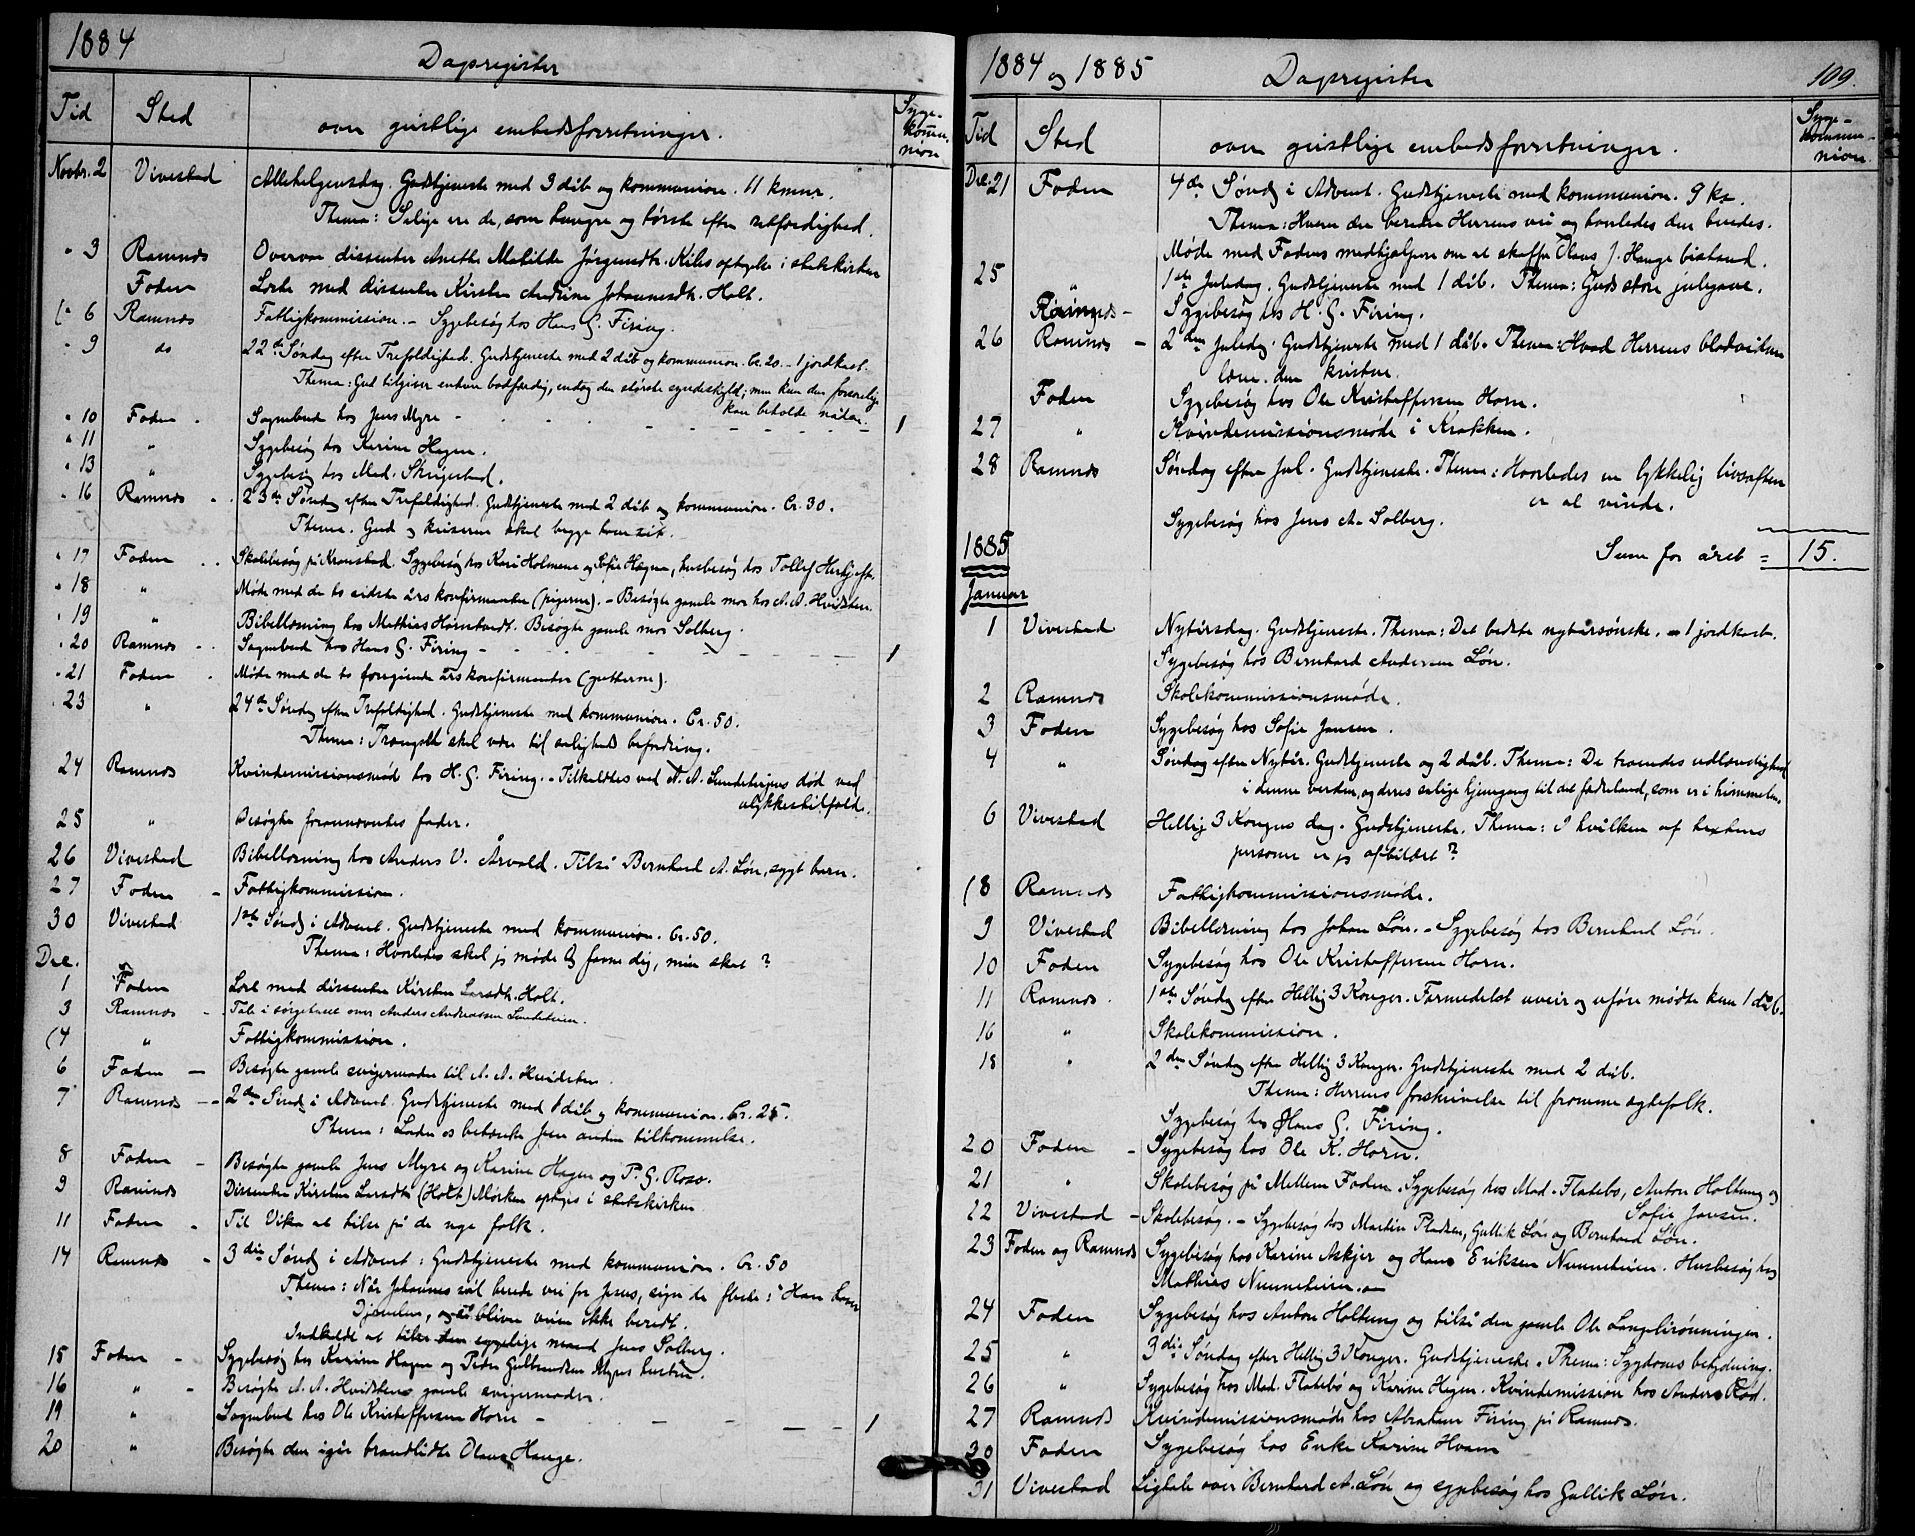 1884
Dagsregister
Tid Sted over geistlige embedsforretninger. Syge-
kommu-
nion
Novbr. 2 Vivestad Allehelgensdag. Gudstjeneste med 3 dåb og kommunion. 11 kmnr.
Thema: Salige ere de, som hungre og tørste efter retfærdighed.
" 3 Ramnes Overvar dissenter Anette Matilde Jørgensdtr. Kiles optagelse i statskirken
Foden Læste med dissenter Kirsten Andrine Johannesdtr. Holt.
(" 6 Ramnes Fattigkommission. - Sygebesøg hos Hans G. Firing.
" 9 do 22de Søndag efter Trefoldighed. Gudstjeneste med 2 dåb og kommunion. Cr. 20. - 1 jordkast.
Thema: Gud tilgiver enhver bodfærdig, endog den største syndeskyld; men kun den forsonlige
kan beholde nåden.
" 10 Foden . Sognebud hos Jens Myre - 1
" 11 " Sygebesøg hos Karine Hagen.
" 13 " Sygebesøg hos Mad. Skrigestad.
" 16 Ramnes . 23de Søndag efter Trefoldighed. Gudstjeneste med 2 dåb og kommunion. Cr. 30.
Thema. Gud og keiseren skal begge have sit.
" 17 Foden . . Skolebesøg på Kronstad. Sygebesøg hos Kari Holmene og Sofie Hagen, husbesøg hos Tollef
" 18 " Møde med de to sidste års konfirmanter (pigerne). - Besøgte gamle mor hos A. A. Hvidsten.
" 19 " Bibellæsning hos Mathias Horntvedt. Besøgte gamle mor Solberg.
" 20 Ramnes - . Sognebud hos Hans G. Firing - 1
" 21 Foden . Møde med de to foregående års konfirmanter (gutterne).
" 23 " 24de Søndag efter Trefoldighed. Gudstjeneste med kommunion. Cr. 50.
Thema: Trængsel skal være til saligheds befordring.
24 Ramnes Kvindemissionsmøde hos H. G. Firing. - Tilkaldtes ved A. A. død ved
ulykkestilfælde.
25 " Besøgte forannævntes fader.
26 Vivestad Bibellæsning hos Anders V. Årvold. Tilså Bernhard A. Løn, sygt barn.
27 Foden - Fattigkommission.
30 Vivestad 1ste Søndag i Advent. Gudstjeneste med kommunion. Cr. 50.
Thema: Hvorledes skal jeg møde Og favne dig, min skat?
Dec.
1 Foden Læst med dissenter Kirsten Larsdtr. Holt.
3 Ramnes - Tale i sørgehuset over Anders Andreassen Sundeteien.
(4 " Fattigkommission.
6 Foden - Besøgte gamle svigermoder til A. A. Hvidsten.
7 Ramnes - - 2den Søndag i Advent. Gudstjeneste med 1 dåb og kommunion. Cr. 25.
Thema: Lader os betænke Jesu anden tilkommelse.
8 Foden - Besøgte gamle Jens Myre og Karine Hagen og P. G. Roso.
9 Ramnes Dissenter Kirsten Larsdtr. (Holt) Mørken optages i statskirken
11 Foden . Til Vika at tilse på de nye folk.
14 Ramnes - 3die Søndag i Advent: Gudstjeneste med kommunion. Cr. 50
Thema: Når Johannes vil berede vei for Jesus, siger de fleste: "Han haver
Djævelen, og så bliver veien ikke beredt.
Indkaldt at tilse den sygelige mand Jens Solberg.
15 Foden - Sygebesøg hos Karine Hagen og Peder Gulbrandsen Myres hustru.
16 " - Besøgte A. A. Hvidstens gamle svigermoder.
19 " Sognebud hos Ole Kristoffersen Horn - 1
20 " Besøgte den igår brandlidte Olaus Hauge.
1884 og 1885 Dagsregister 109.
Tid Sted over geistlige embedsforretninger. Syge-
kommu-
nion
Dec. 21 Foden 4de Sønd. i Advent. Gudstjeneste med kommunion. 9 kr.
Thema: Hvem der bereder Herrens vei og hvorledes den beredes.
Møde med Fodens medhjælpere om at skaffe Olaus J. Hauge bistand.
25 " 1ste Juledag. Gudstjeneste med 1 dåb. Thema: Guds store julegave.
Ramnes - Sygebesøg hos H. G. Firing.
26 Ramnes - 2den Juledag. Gudstjeneste med 1 dåb. Thema: Hvad Herrens blodvidner
lærer den kristne.
Foden Sygebesøg hos Ole Kristoffersen Horn.
27 " Kvindemissionsmøde i Krakken.
28 Ramnes Søndag efter Jul. Gudstjeneste. Thema: Hvorledes en lykkelig livsaften
er at vinde.
Sygebesøg hos Jens A. Solberg.
Sum for året = 15.
1885
Januar
1 Vivestad Nytårsdag. Gudstjeneste. Thema: Det bedste nytårsønske. - 1 jordkast.
Sygebesøg hos Bernhard Andersen Løn.
2 Ramnes Skolekommissionsmøde.
3 Foden Sygebesøg hos Sofie Jansen.
4 " Søndag efter Nytår. Gudstjeneste og 2 dåb. Thema: De troendes udlændighed
i denne verden, og deres salige hjemgang til det fædreland, som er i himmelen.
6 Vivestad Hellig 3 Kongers dag. Gudstjeneste. Thema: I hvilken af textens
personer er jeg afbildet?
(8 Ramnes Fattigkommissionsmøde.
9 Vivestad Bibellæsning hos Johan Løn. - Sygebesøg hos Bernhard Løn.
10 Foden Sygebesøg hos Ole Kristoffersen Horn.
11 Ramnes. 1ste Søndag efter Hellig 3 Konger. Formedelst uveir og uføre mødte kun 1 dåb.
16 " Skolekommission.
18 " 2den Søndag efter Hellig 3 Konger. Gudstjeneste med 2 dåb.
Thema: Herrens forskrivelse til fromme ægtefolk.
Sygebesøg hos Hans G. Firing.
20 Foden - Sygebesøg hos Ole K. Horn.
21 " Skolebesøg på Mellem Foden. Sygebesøg hos Mad. Flatebø, Anton Holtung og
Sofie Jansen.
22 Vivestad - Skolebesøg. - Sygebesøg hos Martin Pladsen, Gullik Løn og Bernhard Løn.
23 Foden og Ramnes Sygebesøg hos Karine Askjer og Hans Eriksen Nummeteien. Husbesøg hos
Mathias Nummeteien.
24 Foden Sygebesøg hos Anton Holtung og tilså den gamle Ole Langelirønningen.
25 " 3die Søndag efter Hellig 3 Konger. Gudstjeneste. Thema: Sygdoms betydning.
26 " Sygebesøg hos Mad. Flatebø og Karine Hagen. Kvindemission hos Anders Rød.
27 Ramnes Kvindemissionsmøde hos Abraham Firing på Ramnes.
30 Foden Sygebesøg hos Enke Karine Hvam
31 Vivestad Ligtale over Bernhard A. Løn og sygebesøg hos Gullik Løn.